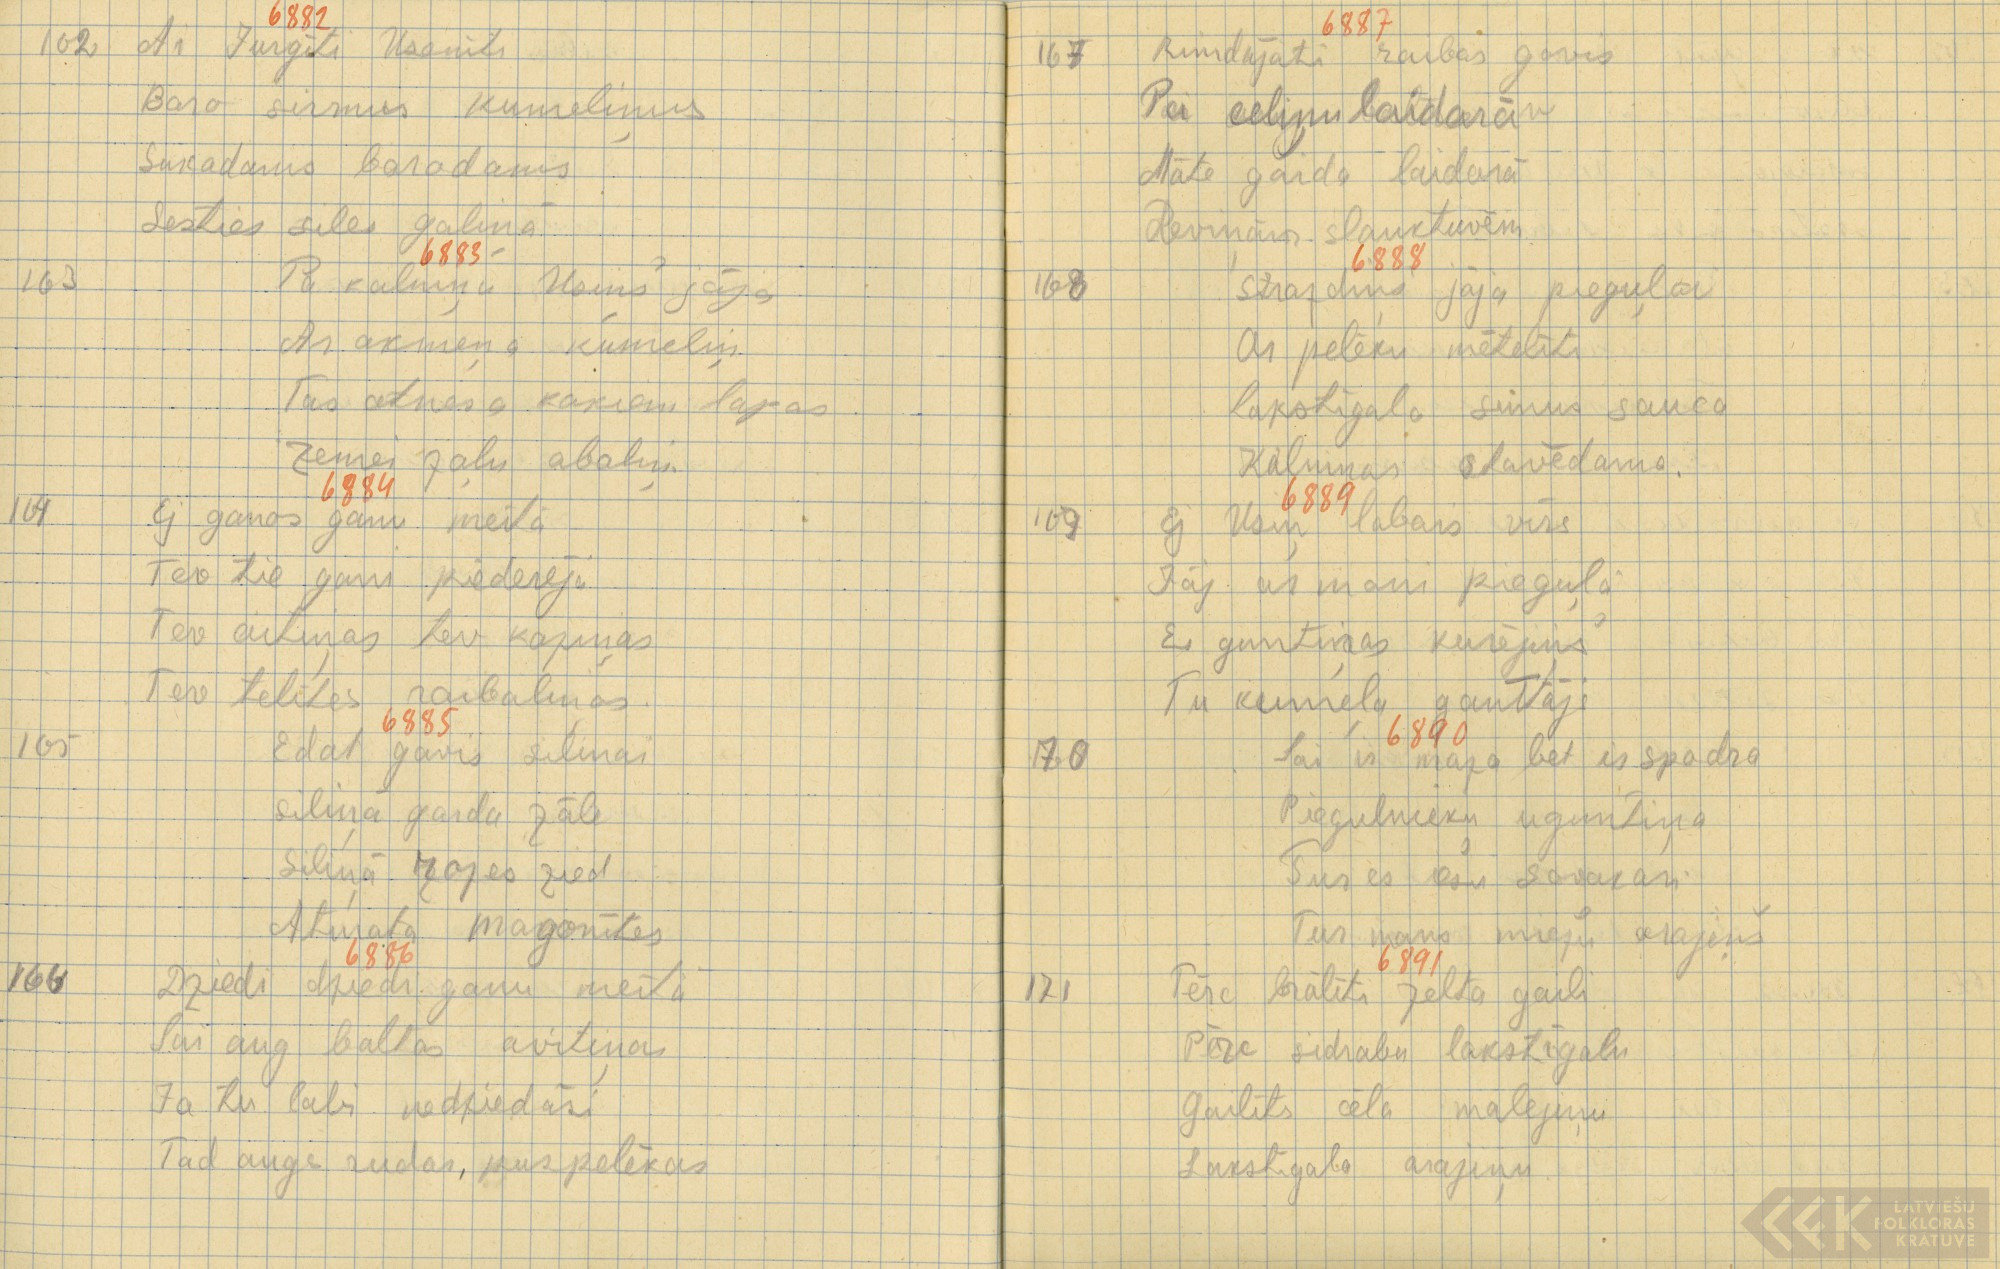 6882
162 Ai Jurgīti Usenīti
Baro sirmus kumeliņus
Sukadams barodams
Sesties siles galiņā
6883
163 Pa kalniņu Usiņš jāja
Ar akmeņa kumeliņ
Tas atnesa kokiem lapas
Zemei zaļu abaliņ.
6884
164 Ej ganos ganu meitā
Tev tie gani piederēja
Tev aitiņas tev kaziņas
Tev telītes raibaliņas.
6885
165 Edat gavis siliņai
Siliņā garda zāle
Siliņā rozes zied
Atmatā magonītes
6886
166 Dziedi dziedi ganu meitā
Lai aug baltas avitiņas
Ja tu labi nedziedāsi
Tad augs rudas, puspelēkas
6887
167 Rindojati raibas govis
Pa celiņu laidarā
Māte gaida laidarā
Deviņām slauktuvēm
6888
168 Strazdiņš jāja pieguļai
Ar pelēku mētelīti
Lakstīgala suņus sauca
Kalniņai stavēdama.
6889
169 Ej Usiņ labais vīrs
Jāj ar mani pieguļā
Es guntiņas kurējiņš
Tu kumeļu ganītājs
6890
170 Lai ir maza bet ir spodra
Piegulnieku uguntiņa
Tur es iešu savakari
Tur mans miežu arajiņš
6891
171 Pērc brālīti zelta gaili
Pērc sidrabu lakstīgalu
Gailīts cēla malejiņu
Lakstigala arajiņu
LATVIEŠU
FOLKLORAS
KRĀTUVE